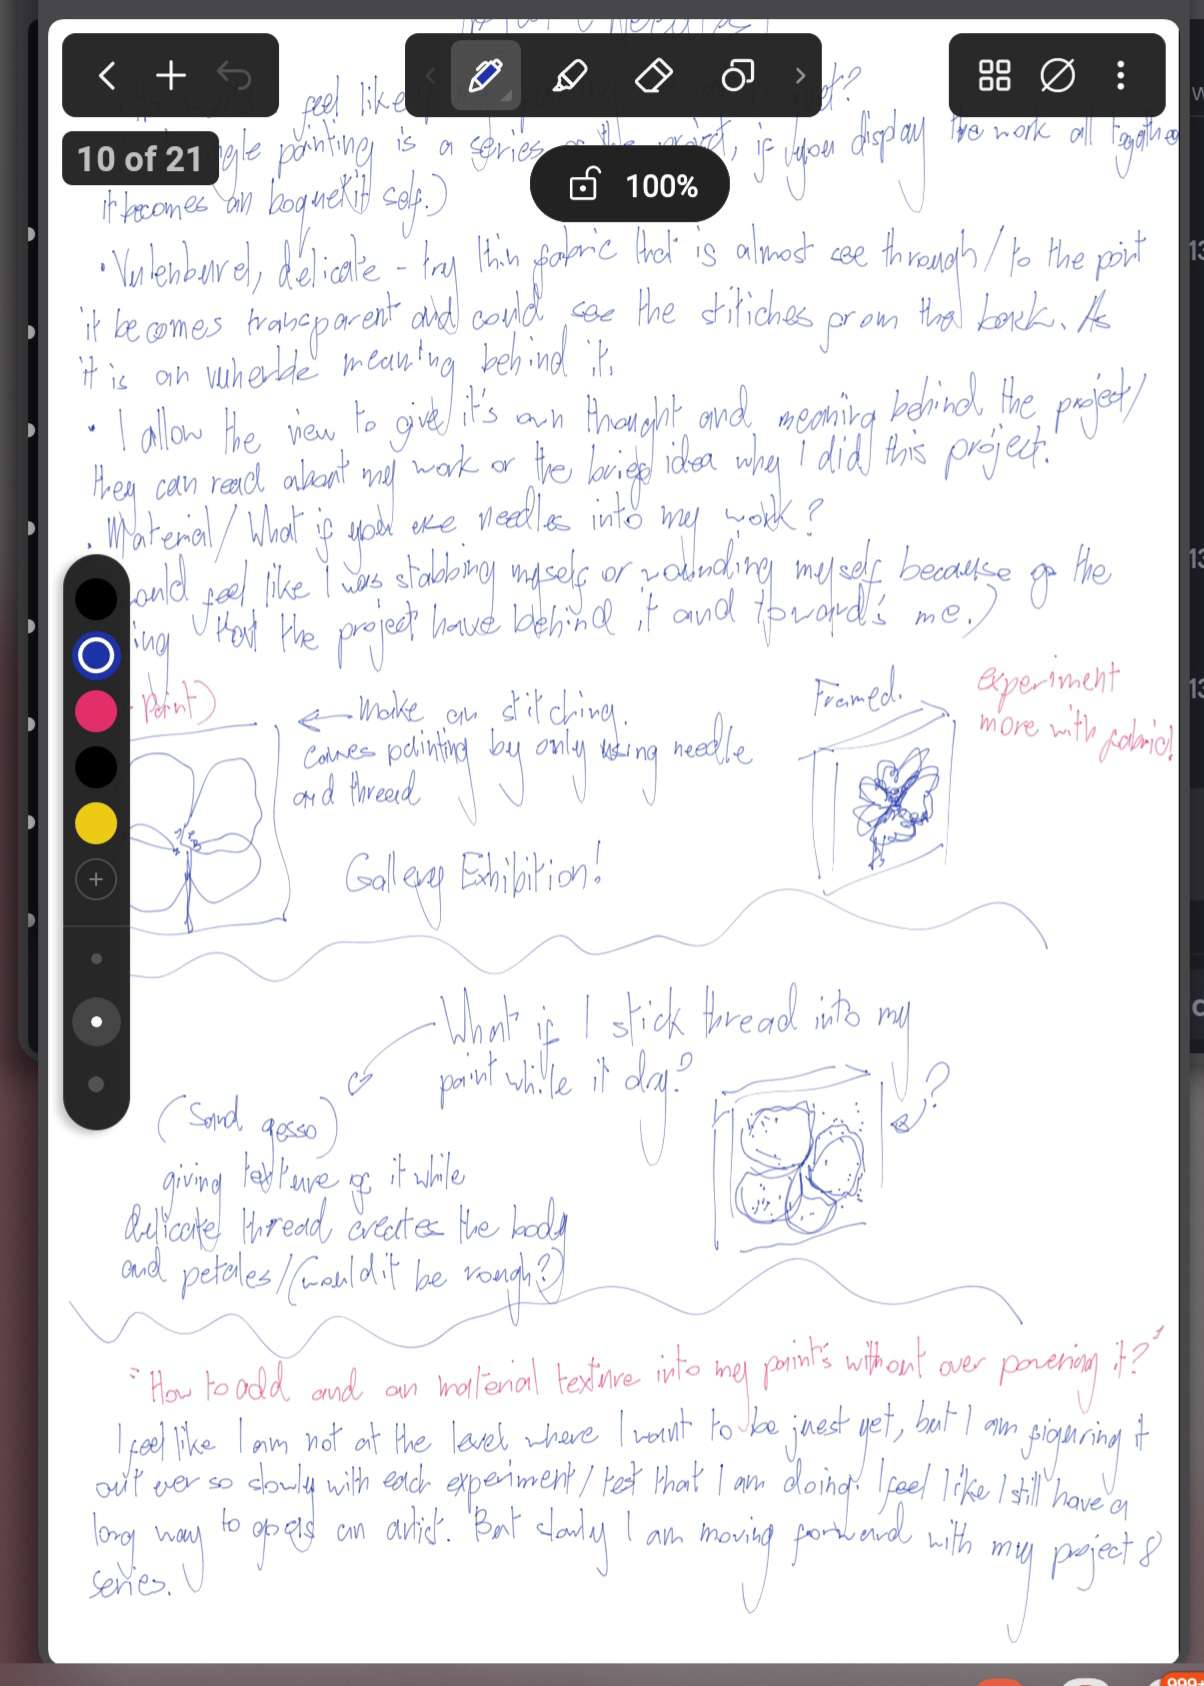 feel like
10 of 21
painting is a series, if you display the work all together
100%
it becomes an boquet it self.)
• Vulenburel, delicate - try thin fabric that is almost see through / to the point
it becomes transparent and could see the stitiches from the back. As
it is an vulnerble meaning behind it.
• I allow the view to give it's own thought and meaning behind the project/
they can read about my work or the brief idea why I did this project.
• Material / What if you use needles into my work?
feel like I was stabbing myself or wounding myself because of the
that the project have behind it and toward's me.)
Paint)
← Make an stitching.
Framed.
experiment
more with fabric!
canves painting by only using needle
and thread
Gallery Exhibition!
What if I stick thread into my
paint while it dry?
?
(Sand gesso)
giving texture of it while
delicate thread creates the body
and petales / (would it be rough?)
"How to add and an material texture into my paint's without over powering it?"
I feel like I am not at the level where I want to be juest yet, but I am figuring it
out ever so slowly with each experiment / test that I am doing. I feel like I still have a
long way to go as an artist. But slowly I am moving forward with my project &
series.